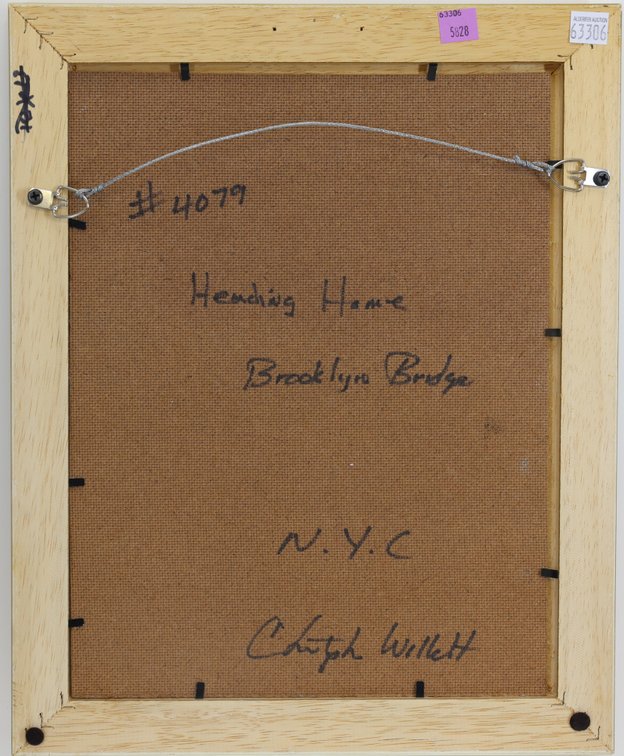 63306
5828
ALDERFER AUCTION
63306
# 4079
Heading Home
Brooklyn Bridge
N.Y.C
Christoph Willett